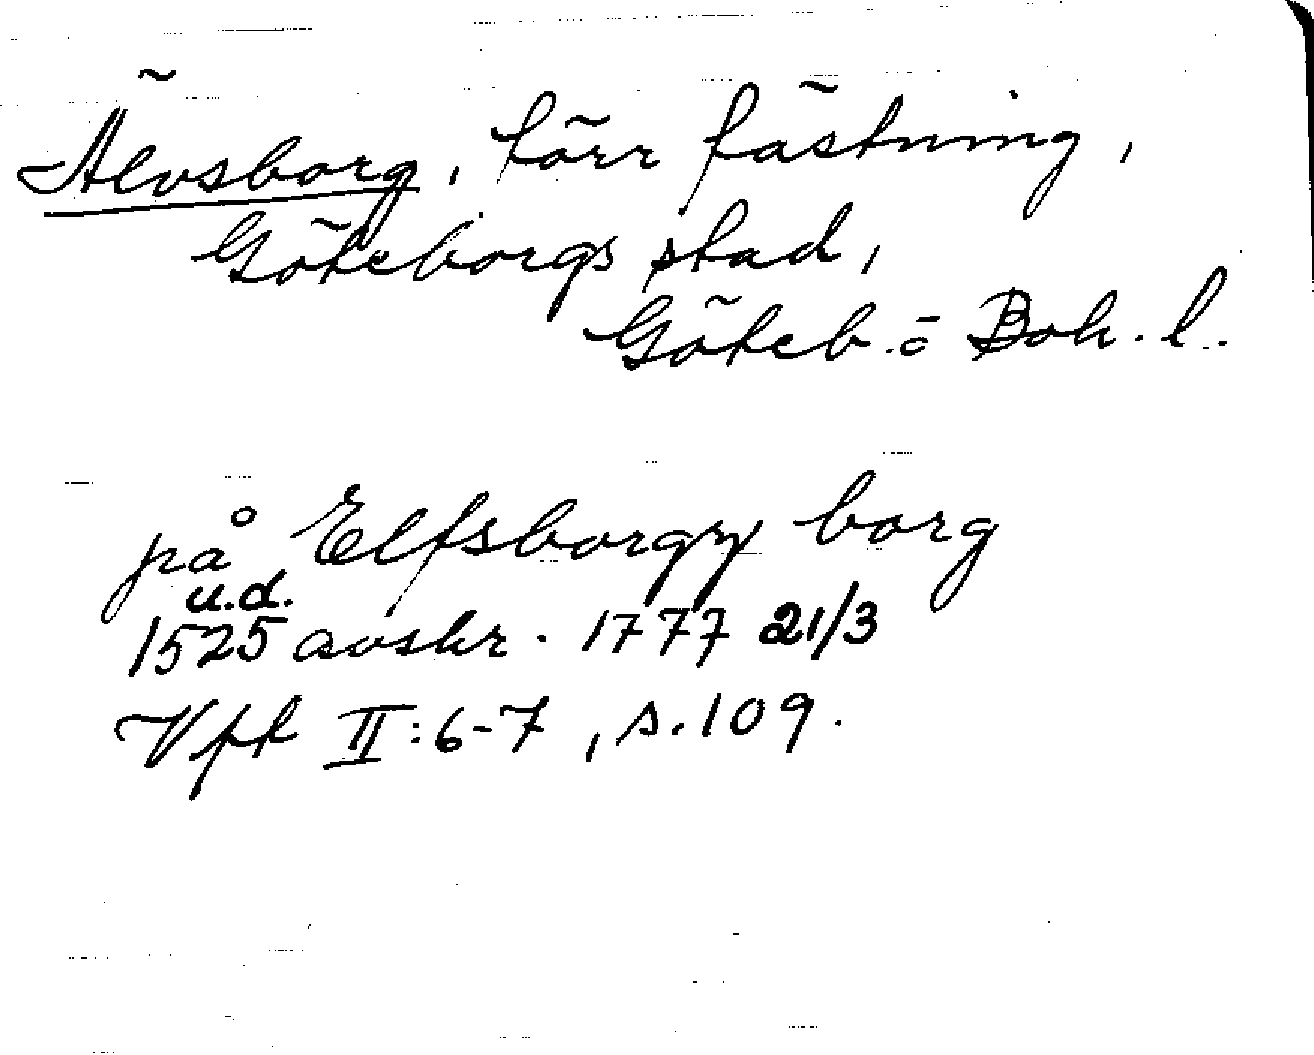 Älvsborg, förr fästning,
Göteborgs stad,
Göteb. o Boh. l.
på Elfsborgx borg
u.d.
1525 avskr. 1777 21/3
Vpf II:6-7, s. 109.